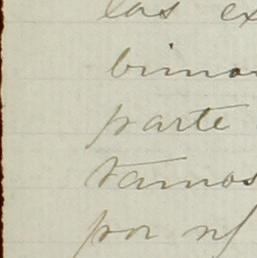 las ex
bimo
parte
tamos
por